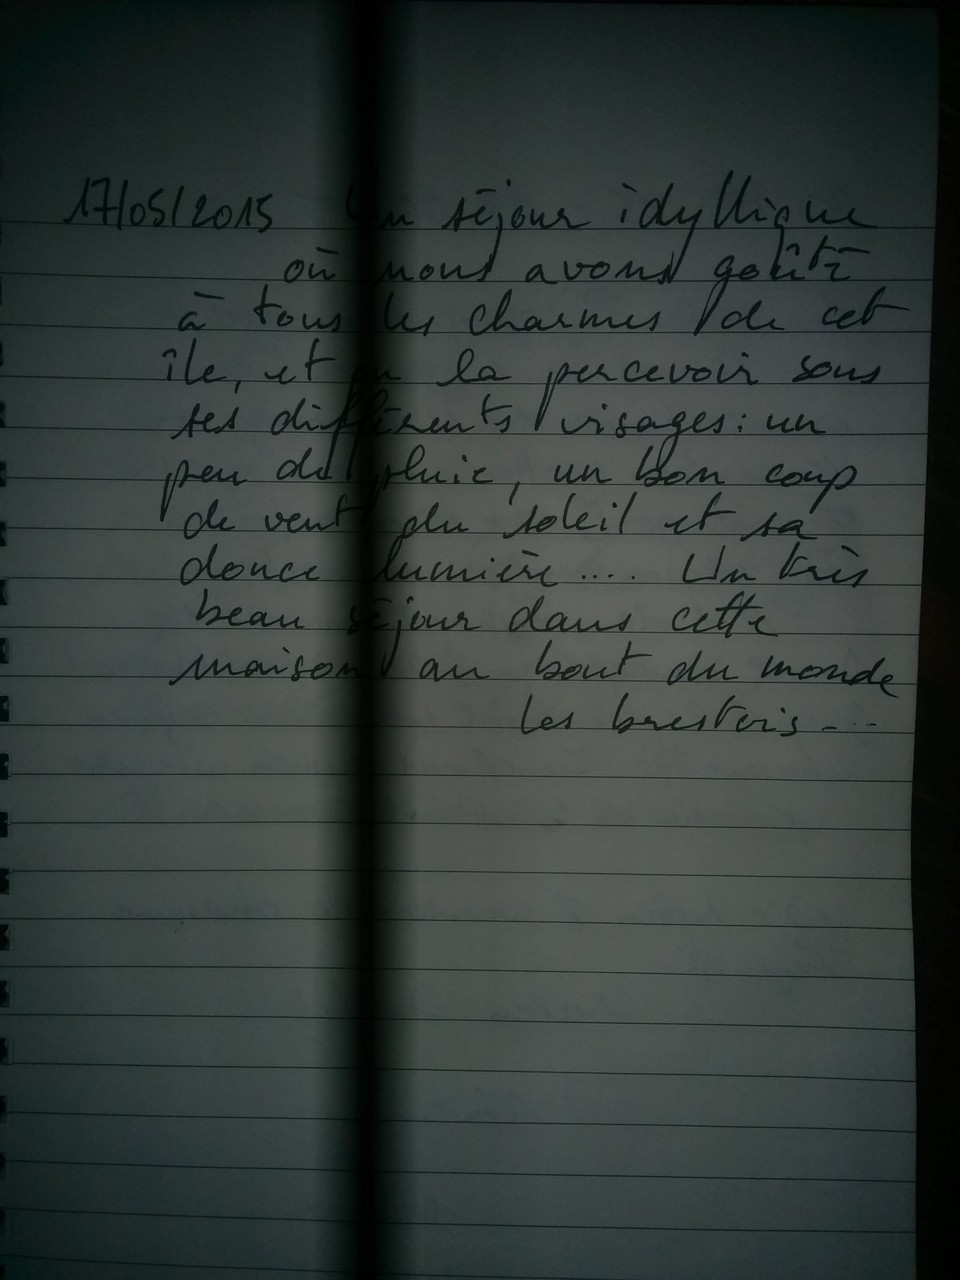 17/05/2015 Un séjour idyllique
où nous avons goûté
à tous les charmes de cet
île, et pu la percevoir sous
ses différents visages : un
peu de pluie, un bon coup
de vent du soleil et sa
douce lumière .... Un très
beau séjour dans cette
maison au bout du monde
Les brestois ...